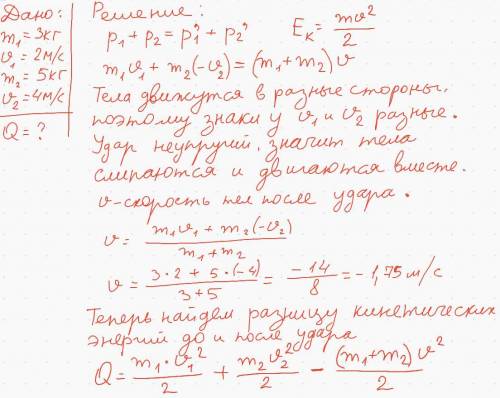 Дано:
m₁ = 3 кг
υ₁ = 2 м/с
m₂ = 5 кг
υ₂ = 4 м/с
Q = ?
Решение:
p₁ + p₂ = p₁' + p₂'
E_K = mυ²/2
m₁υ₁ + m₂(-υ₂) = (m₁+m₂)υ
Тела движутся в разные стороны,
поэтому знаки у υ₁ и υ₂ разные.
Удар неупругий, значит тела
слипаются и двигаются вместе.
υ-скорость тел после удара.
υ = (m₁υ₁ + m₂(-υ₂))/(m₁+m₂)
υ = (3·2 + 5·(-4))/(3+5) = -14/8 = -1,75 м/с
Теперь найдем разницу кинетических
энергий до и после удара
Q = m₁·υ₁²/2 + m₂υ₂²/2 - (m₁+m₂)υ²/2